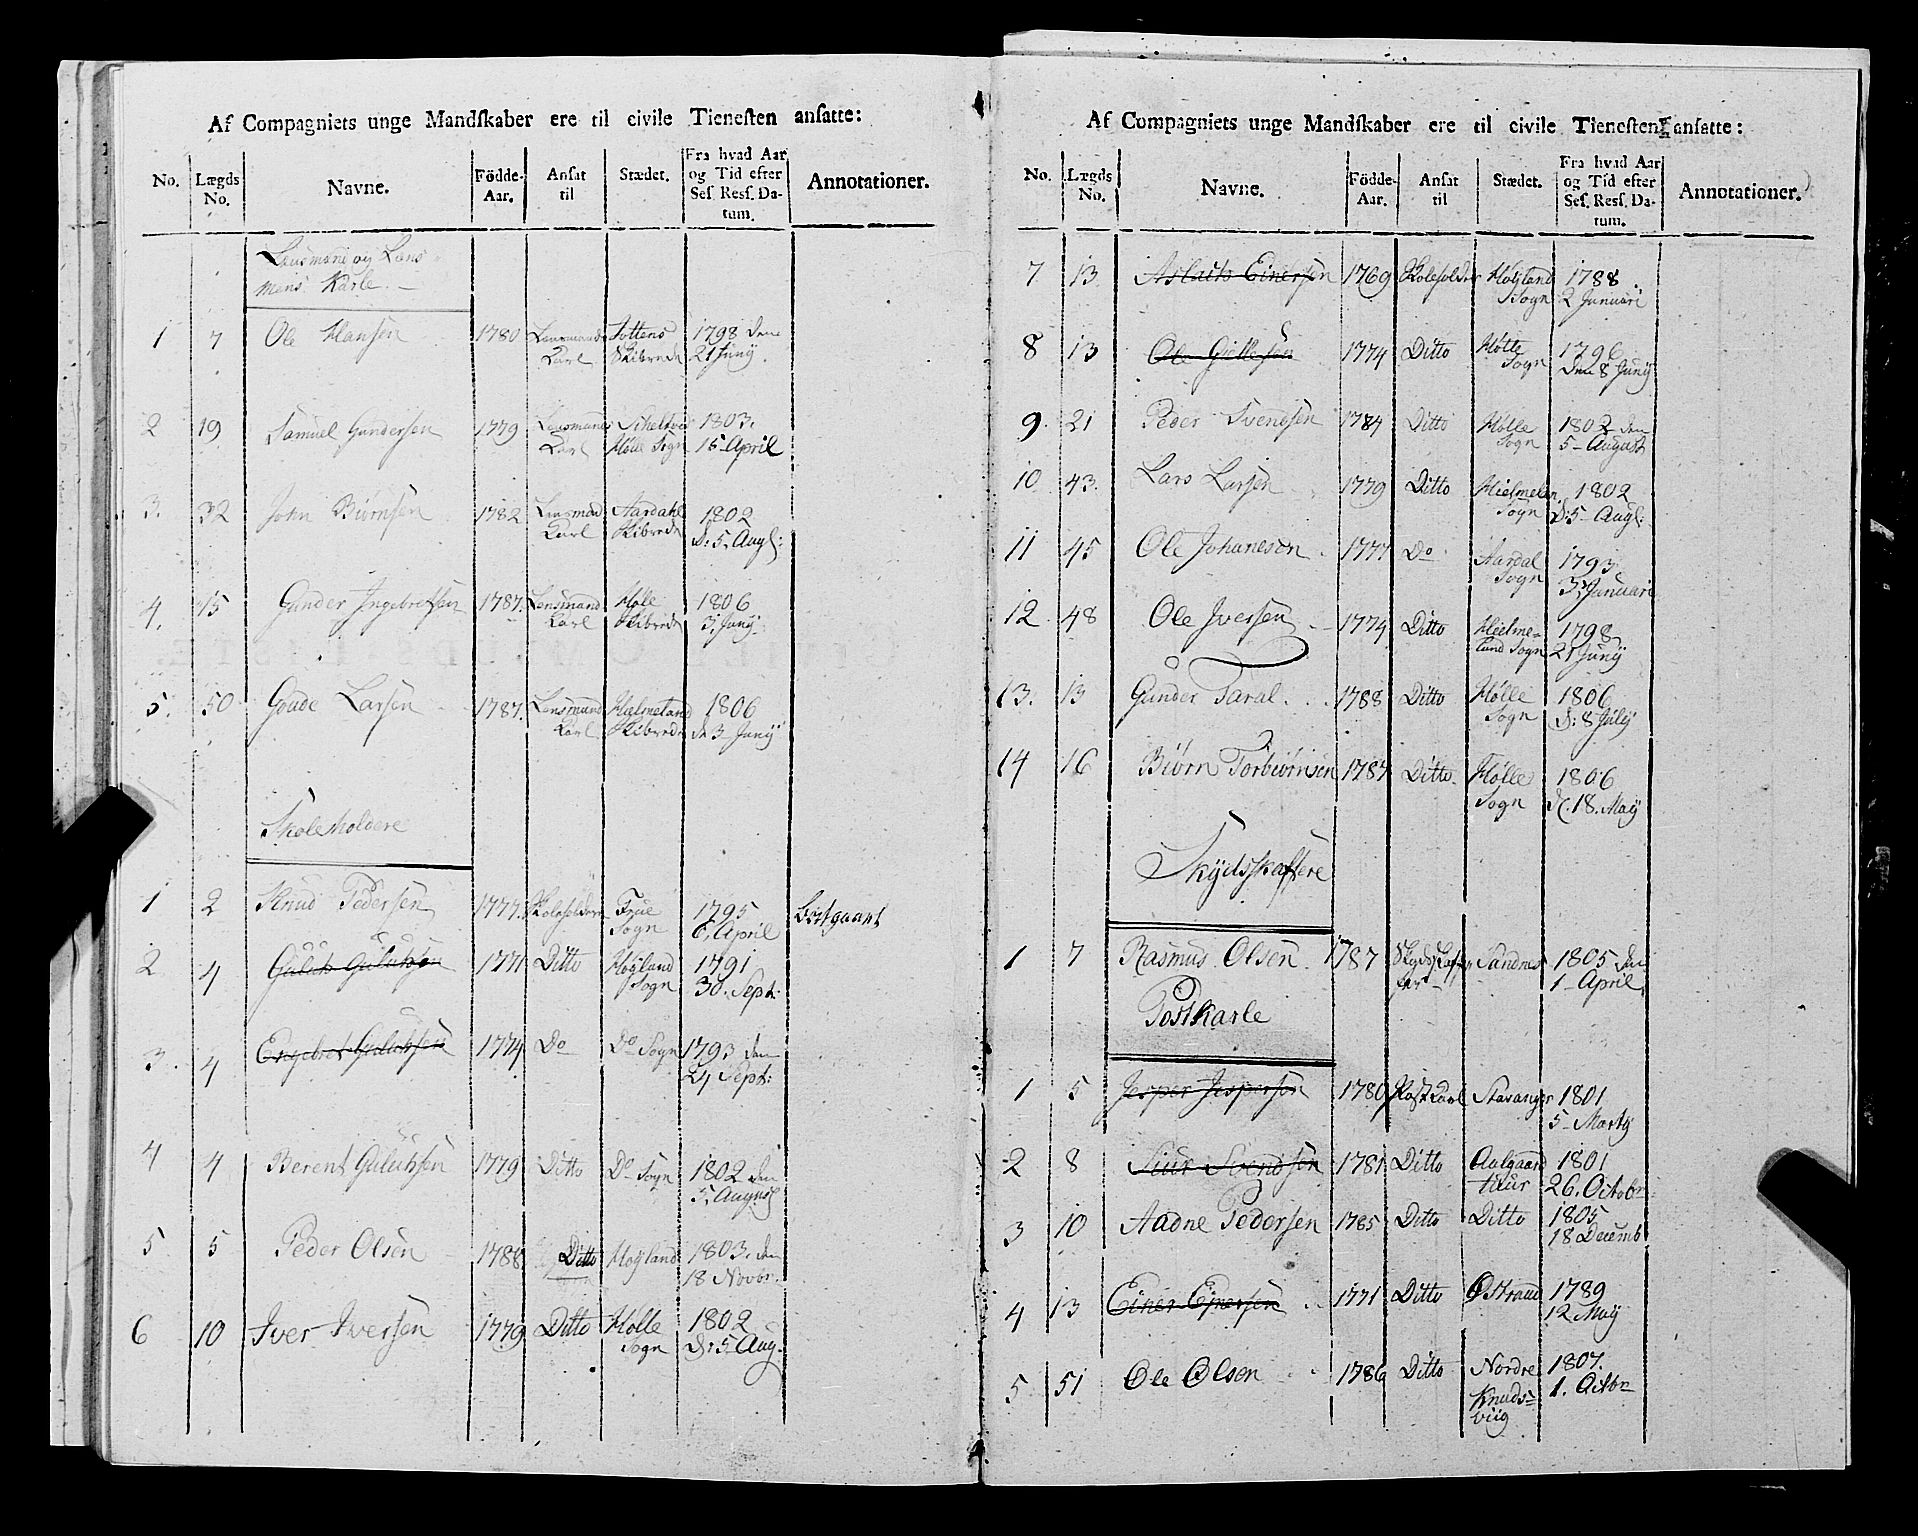 Af Compagniets unge Mandskaber ere til civile Tienesten ansatte:
No. Lægds No. Navne. Födde-Aar. Ansat til Stædet. Fra hvad Aar og Tid efter Ses. Ress. Datum. Annotationer.
Lensmænd og Lens-
mens Karle.
1 7 Ole Hansen 1780 Lensmands Karl Skibrede 1798 den 21 Juny.
2 19 Samuel Gundersen 1779 Lensmands Karl Hølle Sogn 1803. 15 April
3. 32 John Biørnsen 1782 Lensmand Karl Aardahl Skibrede 1802 d: 5. Augl:
4. 15 Gunder Ingebretsen 1787. Lensmand Karl Høle Skibrede 1806 3. Juny
5. 50 Gude Larsen 1787. Lensmand Karl Hielmeland Skibrede 1806 d 3 Juny
Skoleholdere
1 2 Knud Pedersen 1777. Skoleholdere Sogn 1795 6. April Bortgaaet
2 4 1771 Ditto Høyland Sogn 1791 30. Sept:
3. 4 Engebret Gulichsen 1774 Do Do Sogn 1793 den 24 Sept:
4 4 Berent Gulichsen 1779 Ditto Do Sogn 1802 den 5. August
5 5 Peder Olsen 1788 Ditto Høyland 1803. den 18 Novbr.
6 10 Iver Iversen 1779 Ditto Hølle Sogn 1802 d: 5. Aug.
Af Compagniets unge Mandskaber ere til civile Tienesten ansatte:
No. Lægds No. Navne. Födde-Aar. Ansat til Stædet. Fra hvad Aar og Tid efter Ses. Ress. Datum. Annotationer.
7 13 Aslach Einersen 1769 Skoleholder Høyland Sogn 1788. 2 Januari
8 13 Ole 1774 Ditto Hølle Sogn 1796 den 8 Juny
9 21 Peder Svendsen 1784 Ditto Hølle Sogn 1802 den 5 August
10 43. Lars Larsen 1779 Ditto Hielmelan Sogn 1802 D: 5 Augl:
11 45 Ole Johanesen 1777 Do Aardal Sogn 1793 3. Januari
12 48 Ole Iversen 1774 Ditto Hielme-
land Sogn 1798 21 Juny
13. 13 Gunder Taral 1788 Ditto Hølle Sogn 1806 d: 8 July
14 16 Biørn Torbiørnsen 1787 Ditto Hølle Sogn 1806 d. 18. May
Skydsskaffere
1 7 Rasmus Olsen 1787 Sandnes 1805 den 1 April
Postkarle
1 5 Jesper Jespersen 1780 Postkarl Stavanger 1801 5 Marty
2 8 Siur Svendsen 1781 Ditto Aalgaard 1801 26. Octobr
3 10 Aadne Pedersen 1785 Ditto Ditto 1805 18 Decemb
4 13 Einer Einersen 1771 Ditto Østraad 1789 12 May
5 51 Ole Olsen 1786 Ditto Nordre Knuds-
viig 1807. 1. Octbr